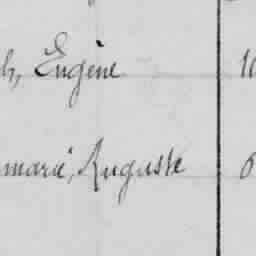 h, Eugène 10
marie, Auguste 6